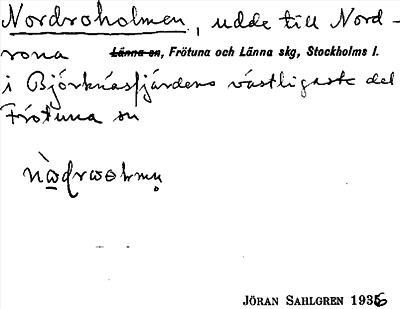 Nordroholmen, udde till Nord-
rona Länna sn, Frötuna och Länna skg, Stockholms l.
i Björknäsfjärdens västligaste del
Frötuna sn
JÖRAN SAHLGREN 1936